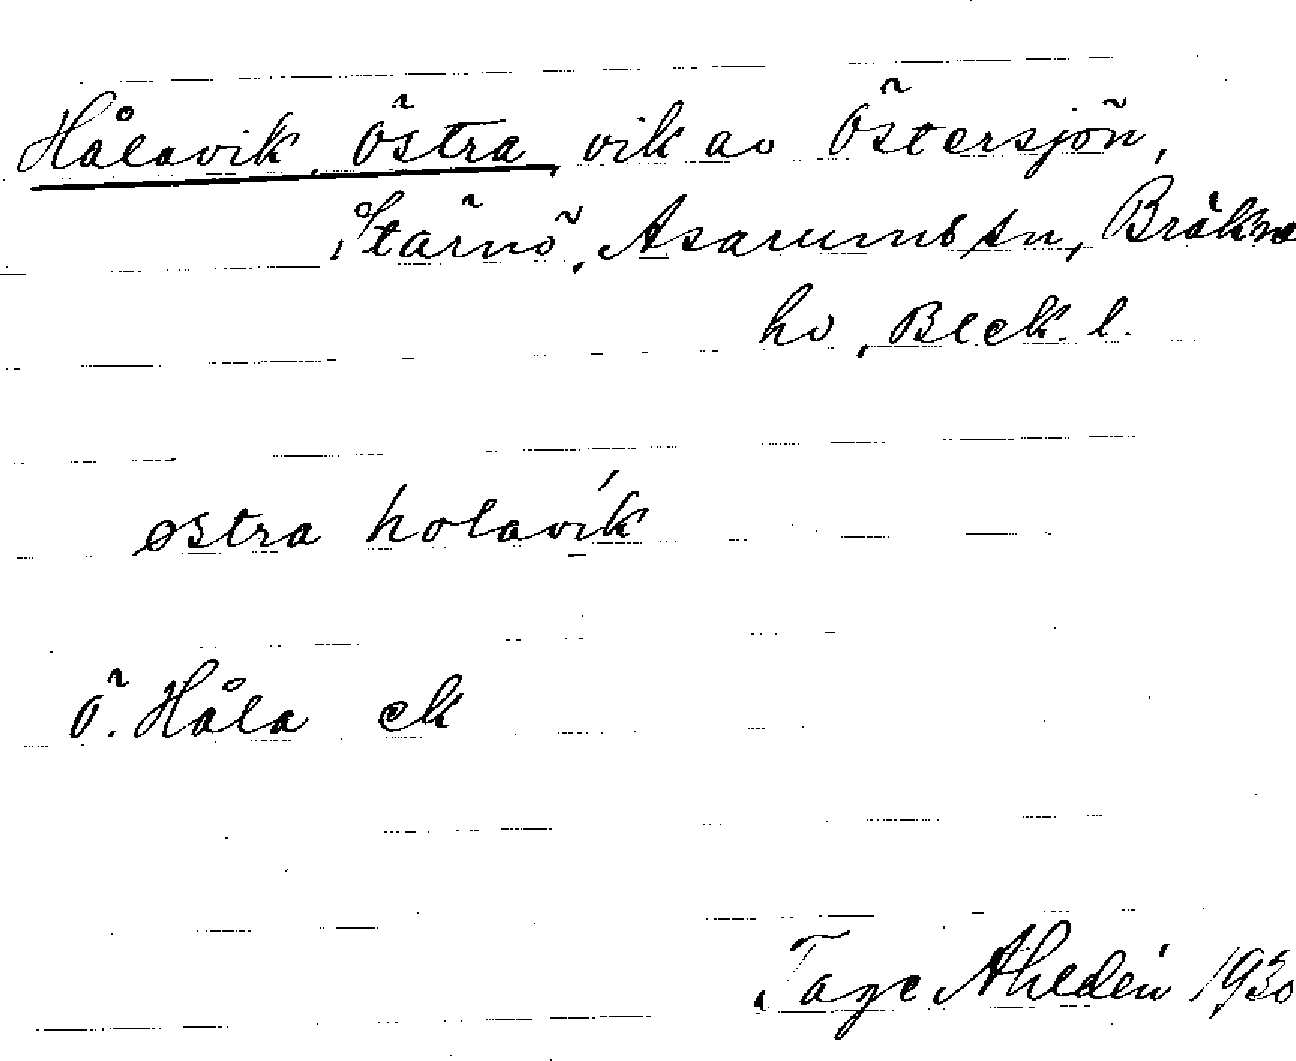 Hålavik Östra, vik av Östersjön,
Stärnö, Asarums sn, Bräkne
hd, Blek. l.
østra holavik
Ö. Håla ek
Tage Ahldén 1930